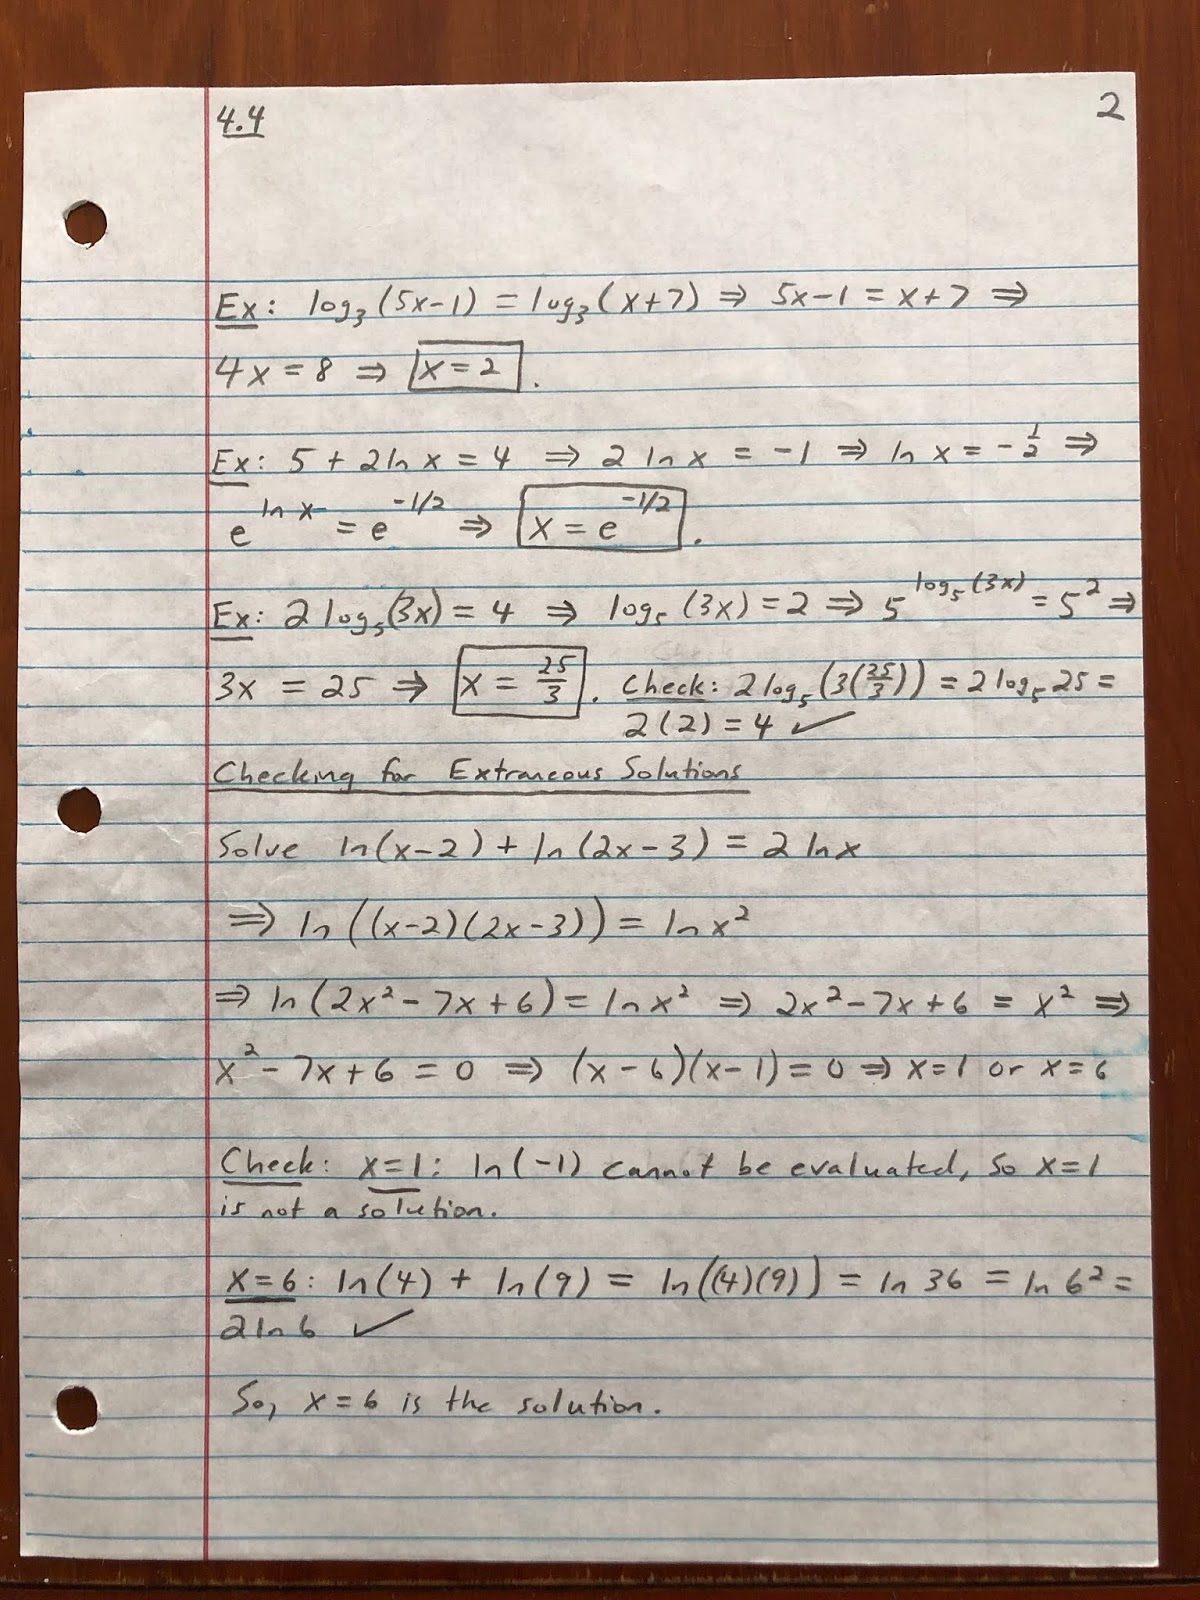 4.4 2
Ex: log₃(5x-1) = log₃(x+7) ⇒ 5x-1 = x+7 ⇒
4x = 8 ⇒ x = 2.
Ex: 5 + 2 ln x = 4 ⇒ 2 ln x = -1 ⇒ ln x = -1/2 ⇒
e^(ln x) = e^(-1/2) ⇒ x = e^(-1/2).
Ex: 2 log₅(3x) = 4 ⇒ log₅(3x) = 2 ⇒ 5^(log₅(3x)) = 5² ⇒
3x = 25 ⇒ x = 25/3. Check: 2 log₅(3(25/3)) = 2 log₅ 25 =
2(2) = 4 ✓
Checking for Extraneous Solutions
Solve ln(x-2) + ln(2x-3) = 2 ln x
⇒ ln((x-2)(2x-3)) = ln x²
⇒ ln(2x² - 7x + 6) = ln x² ⇒ 2x² - 7x + 6 = x² ⇒
x² - 7x + 6 = 0 ⇒ (x-6)(x-1) = 0 ⇒ x=1 or x=6
Check: x=1: ln(-1) cannot be evaluated, so x=1
is not a solution.
x=6: ln(4) + ln(9) = ln((4)(9)) = ln 36 = ln 6² =
2 ln 6 ✓
So, x = 6 is the solution.